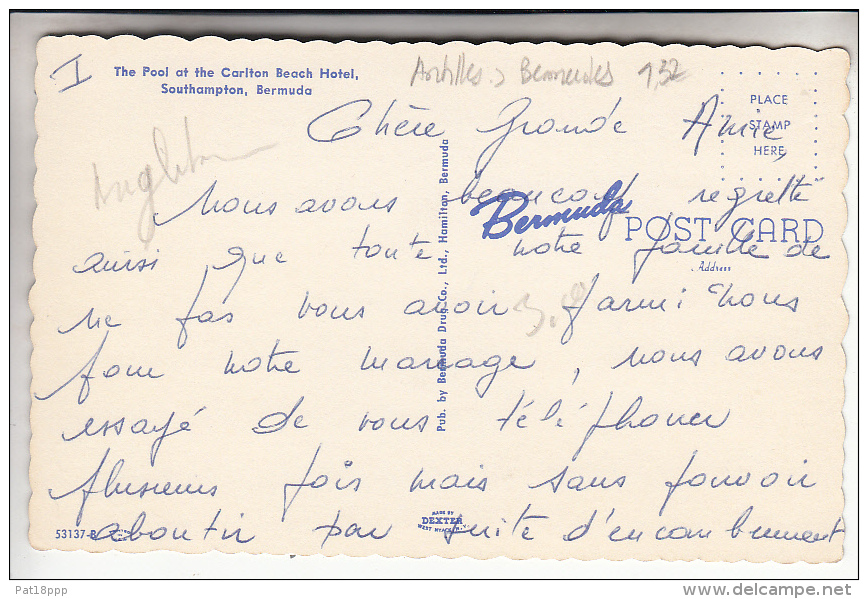 I
The Pool at the Carlton Beach Hotel,
Southampton, Bermuda
Antilles > Bermudes 132
PLACE
STAMP
HERE
Chère Grande Amie,
Nous avons beaucoup regretté
Bermuda
POST CARD
Address
aussi que toute notre famille de
ne pas vous avoir parmi nous
3,00
pour notre mariage, nous avons
essayé de vous téléphoner
plusieurs fois mais sans pouvoir
aboutir par suite d'encombrement
Pub. by Bermuda Drug Co., Ltd., Hamilton, Bermuda
53137-B
MADE BY
DEXTER
WEST NYACK, N.Y.
Pat18ppp
delcampe.net